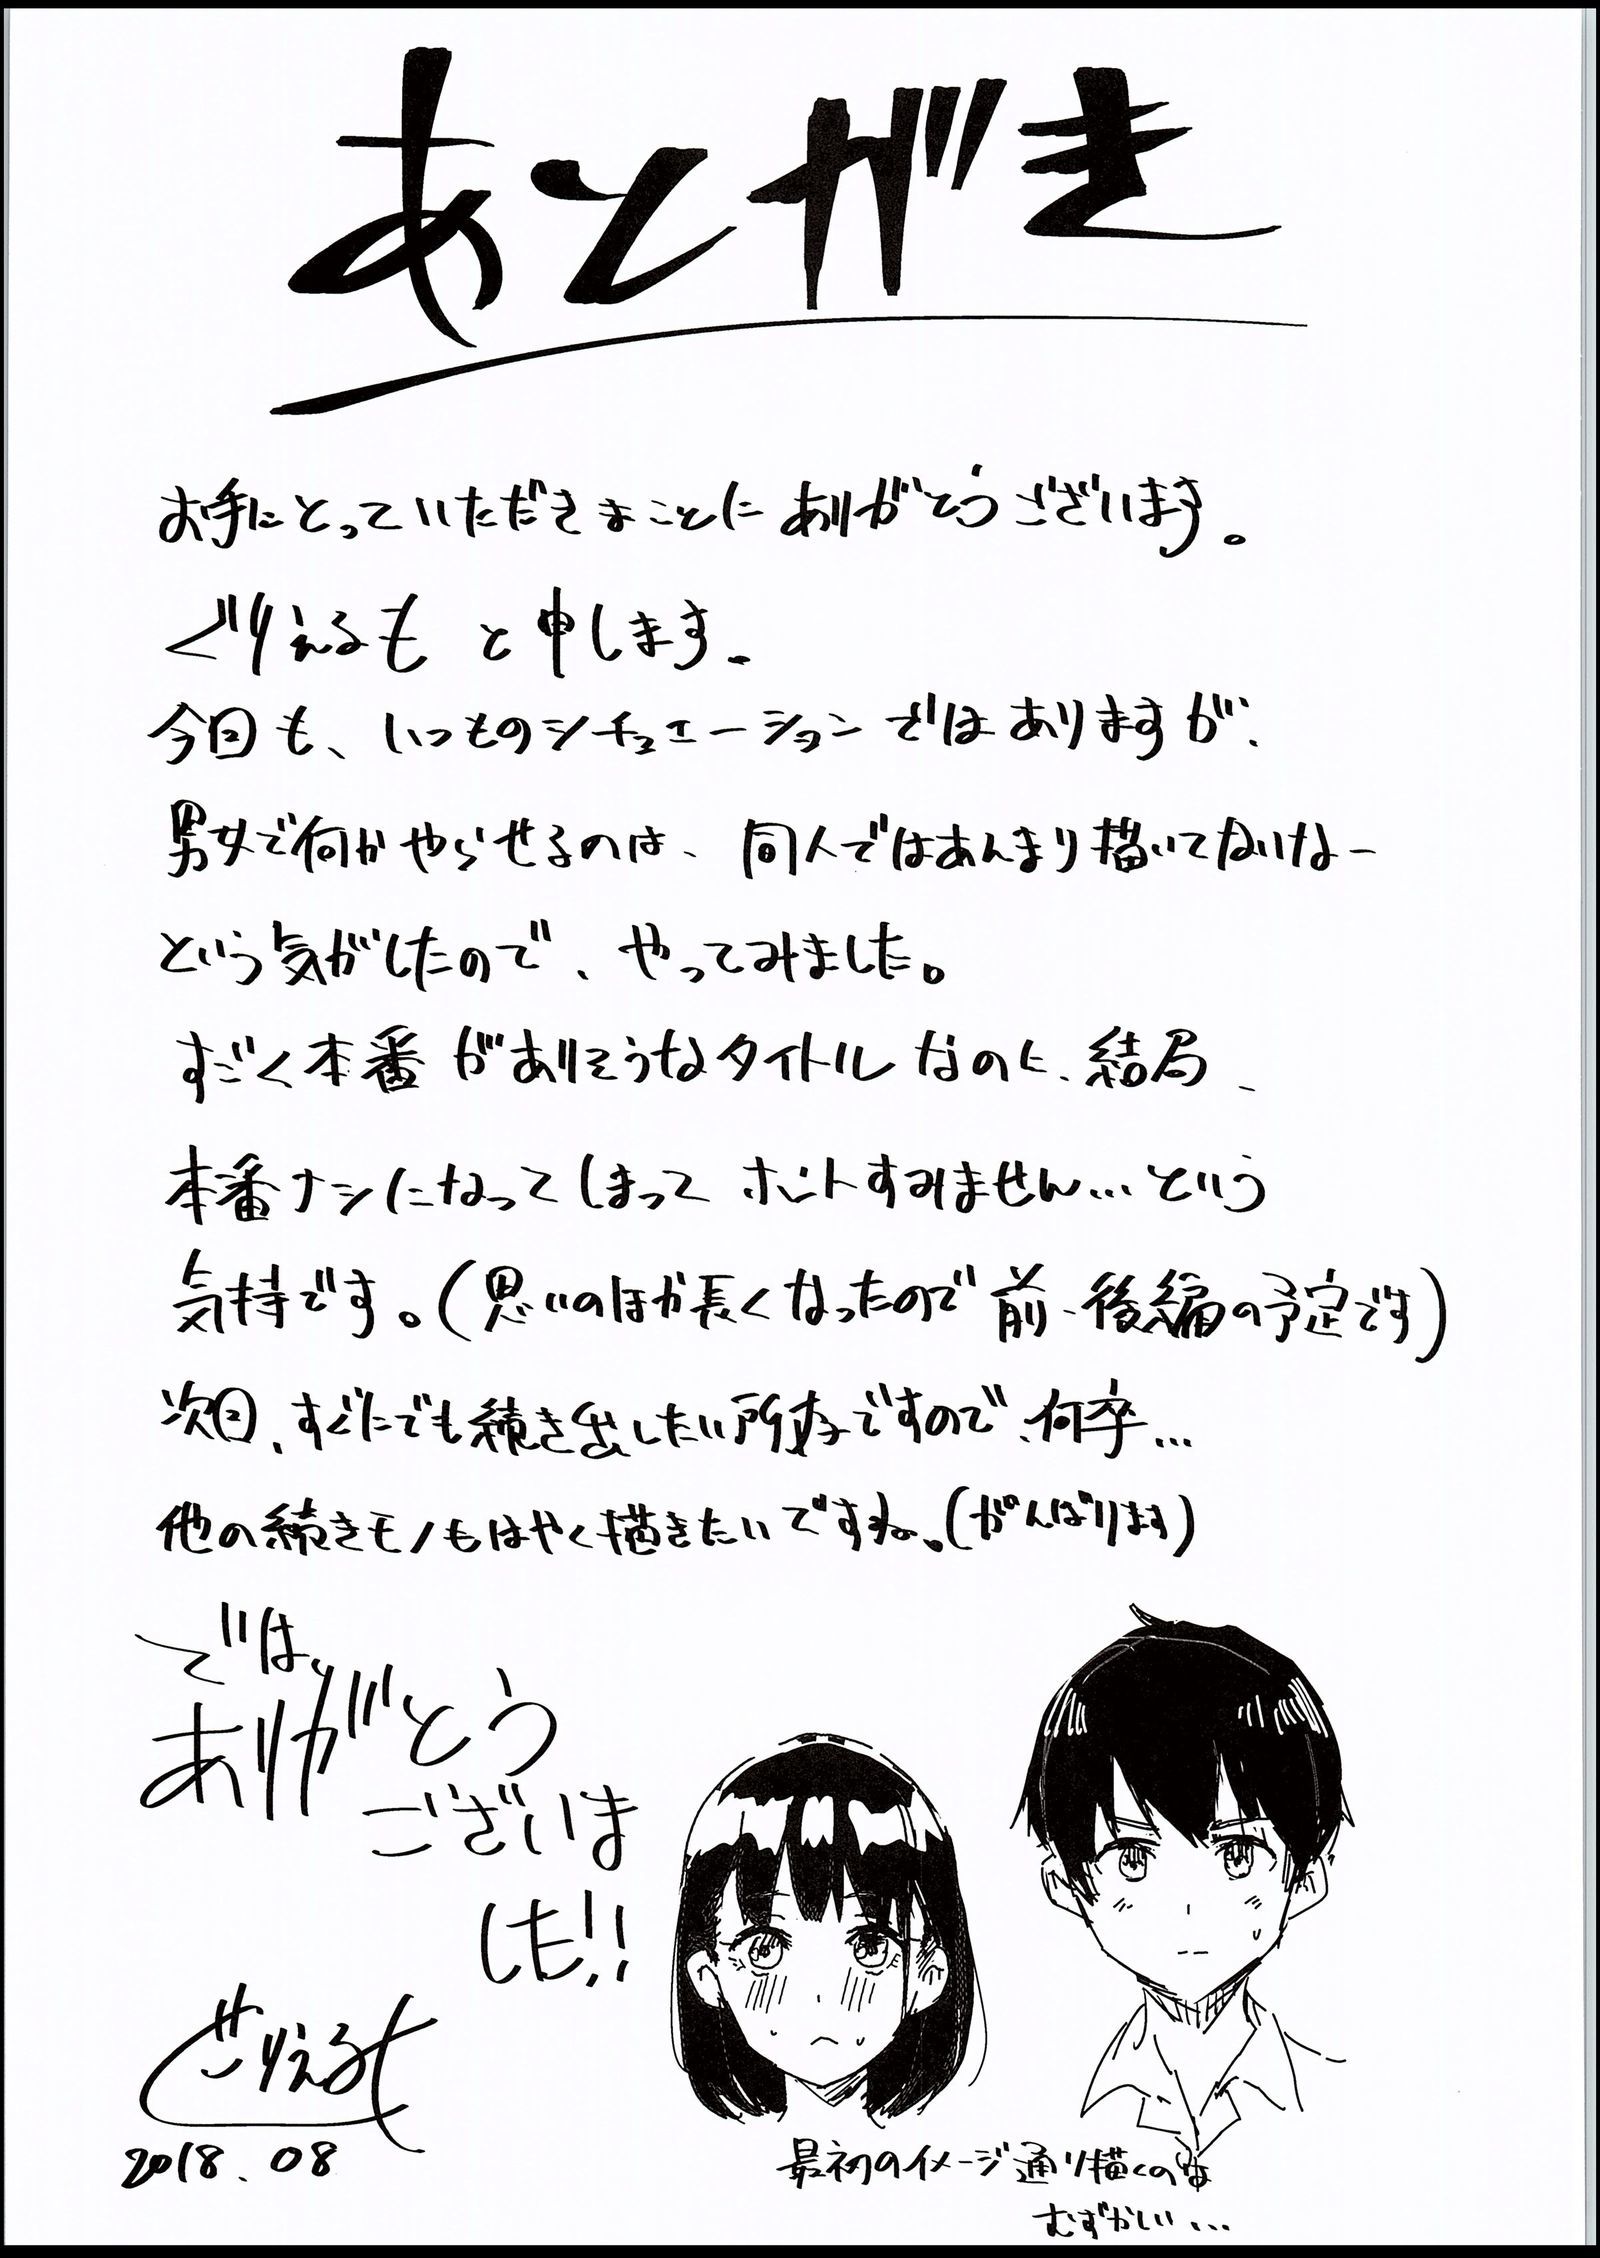 あとがき
お手にとっていただきまことにありがとうございます。
ぐりえるも と申します。
今回も、いつものシチュエーションではありますが、
男女で何かやらせるのは、同人ではあんまり描いてないなー
という気がしたので、やってみました。
すごく本番がありそうなタイトルなのに、結局、
本番ナシになってしまってホントすみません…という
気持です。(思いのほか長くなったので前・後編の予定です)
次回、すぐにでも続き出したい所存ですので、何卒…
他の続きモノもはやく描きたいですね。(がんばります)
では、
ありがとう
ございま
した!!
ぐりえるも
2018.08
最初のイメージ通り描くのは
むずかしい…